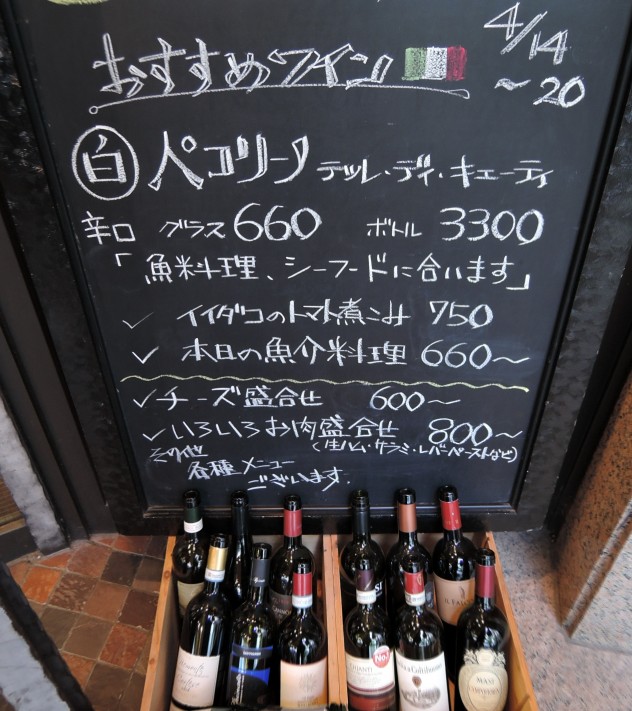 おすすめワイン
4/14
~20
白 ペコリーノ テッレ・ディ・キエーティ
辛口 グラス 660 ボトル 3300
「魚料理、シーフードに合います」
✓ イイダコのトマト煮こみ 750
✓ 本日の魚介料理 660~
✓チーズ盛合せ 600~
✓いろいろお肉盛合せ 800~
(生ハム・サラミ・レバーペーストなど)
その他
各種メニュー
ございます.
CHIANTI
No.1
IL FALU
MASI